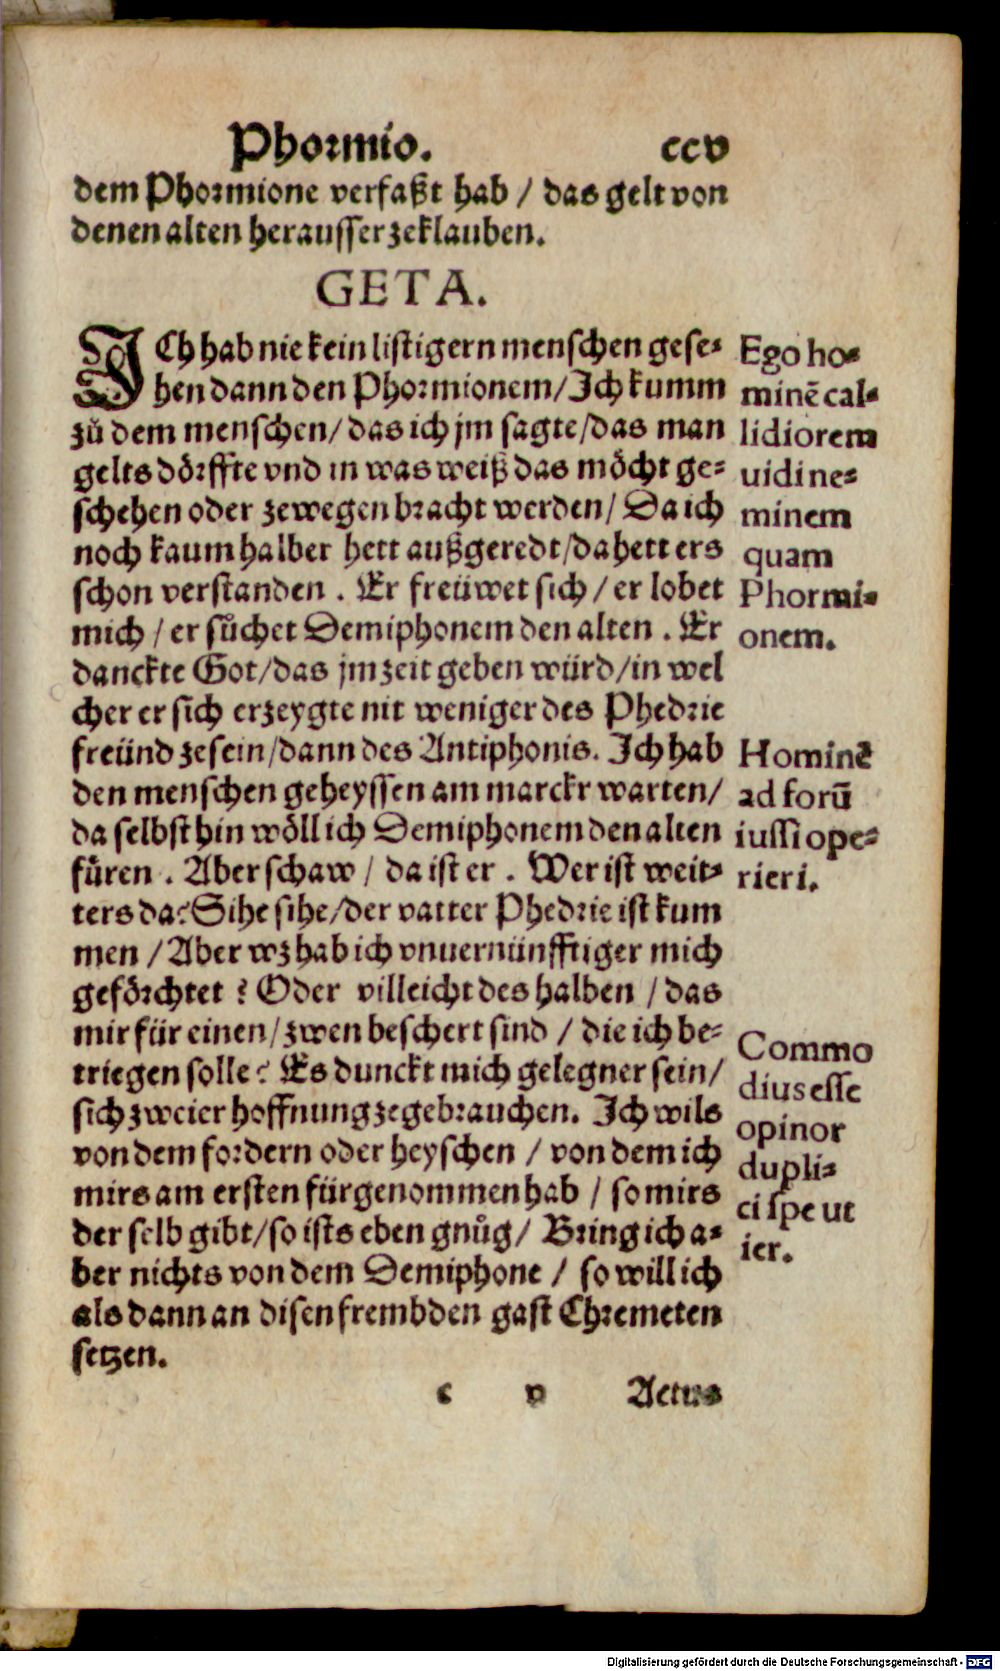 Phormio. ccv
dem Phormione verfaßt hab / das gelt von
denen alten herausser zeklauben.
GETA.
ICh hab nie kein listigern menschen gese⸗
hen dann den Phormionem/Ich kumm
zů dem menschen/das ich jm sagte/das man
gelts dörffte vnd in was weiß das möcht ge⸗
schehen oder zewegen bracht werden/Da ich
noch kaum halber hett außgeredt/da hett ers
schon verstanden . Er freüwet sich / er lobet
mich / er sůchet Demiphonem den alten . Er
danckte Got/das jm zeit geben würd/in wel
cher er sich erzeygte nit weniger des Phedrie
freünd zesein/dann des Antiphonis. Ich hab
den menschen geheyssen am marckt warten/
da selbst hin wöll ich Demiphonem den alten
füren . Aber schaw / da ist er . Wer ist weit⸗
ters da? Sihe sihe/der vatter Phedrie ist kum
men / Aber wz hab ich vnuernünfftiger mich
geförchtet ? Oder villeicht des halben / das
mir für einen/zwen beschert sind / die ich be⸗
triegen solle? Es dunckt mich gelegner sein/
sich zweier hoffnung zegebrauchen. Ich wils
von dem fordern oder heyschen / von dem ich
mirs am ersten fürgenommen hab / so mirs
der selb gibt/so ists eben gnůg/ Bring ich a⸗
ber nichts von dem Demiphone / so will ich
als dann an disen frembden gast Chremeten
setzen.
c v Actus
Ego ho⸗
minē cal⸗
lidiorem
uidi ne⸗
minem
quam
Phormi⸗
onem.
Hominē
ad forū
iussi ope⸗
rieri.
Commo
dius esse
opinor
dupli⸗
ci spe ut
ier.
Digitalisierung gefördert durch die Deutsche Forschungsgemeinschaft - DFG